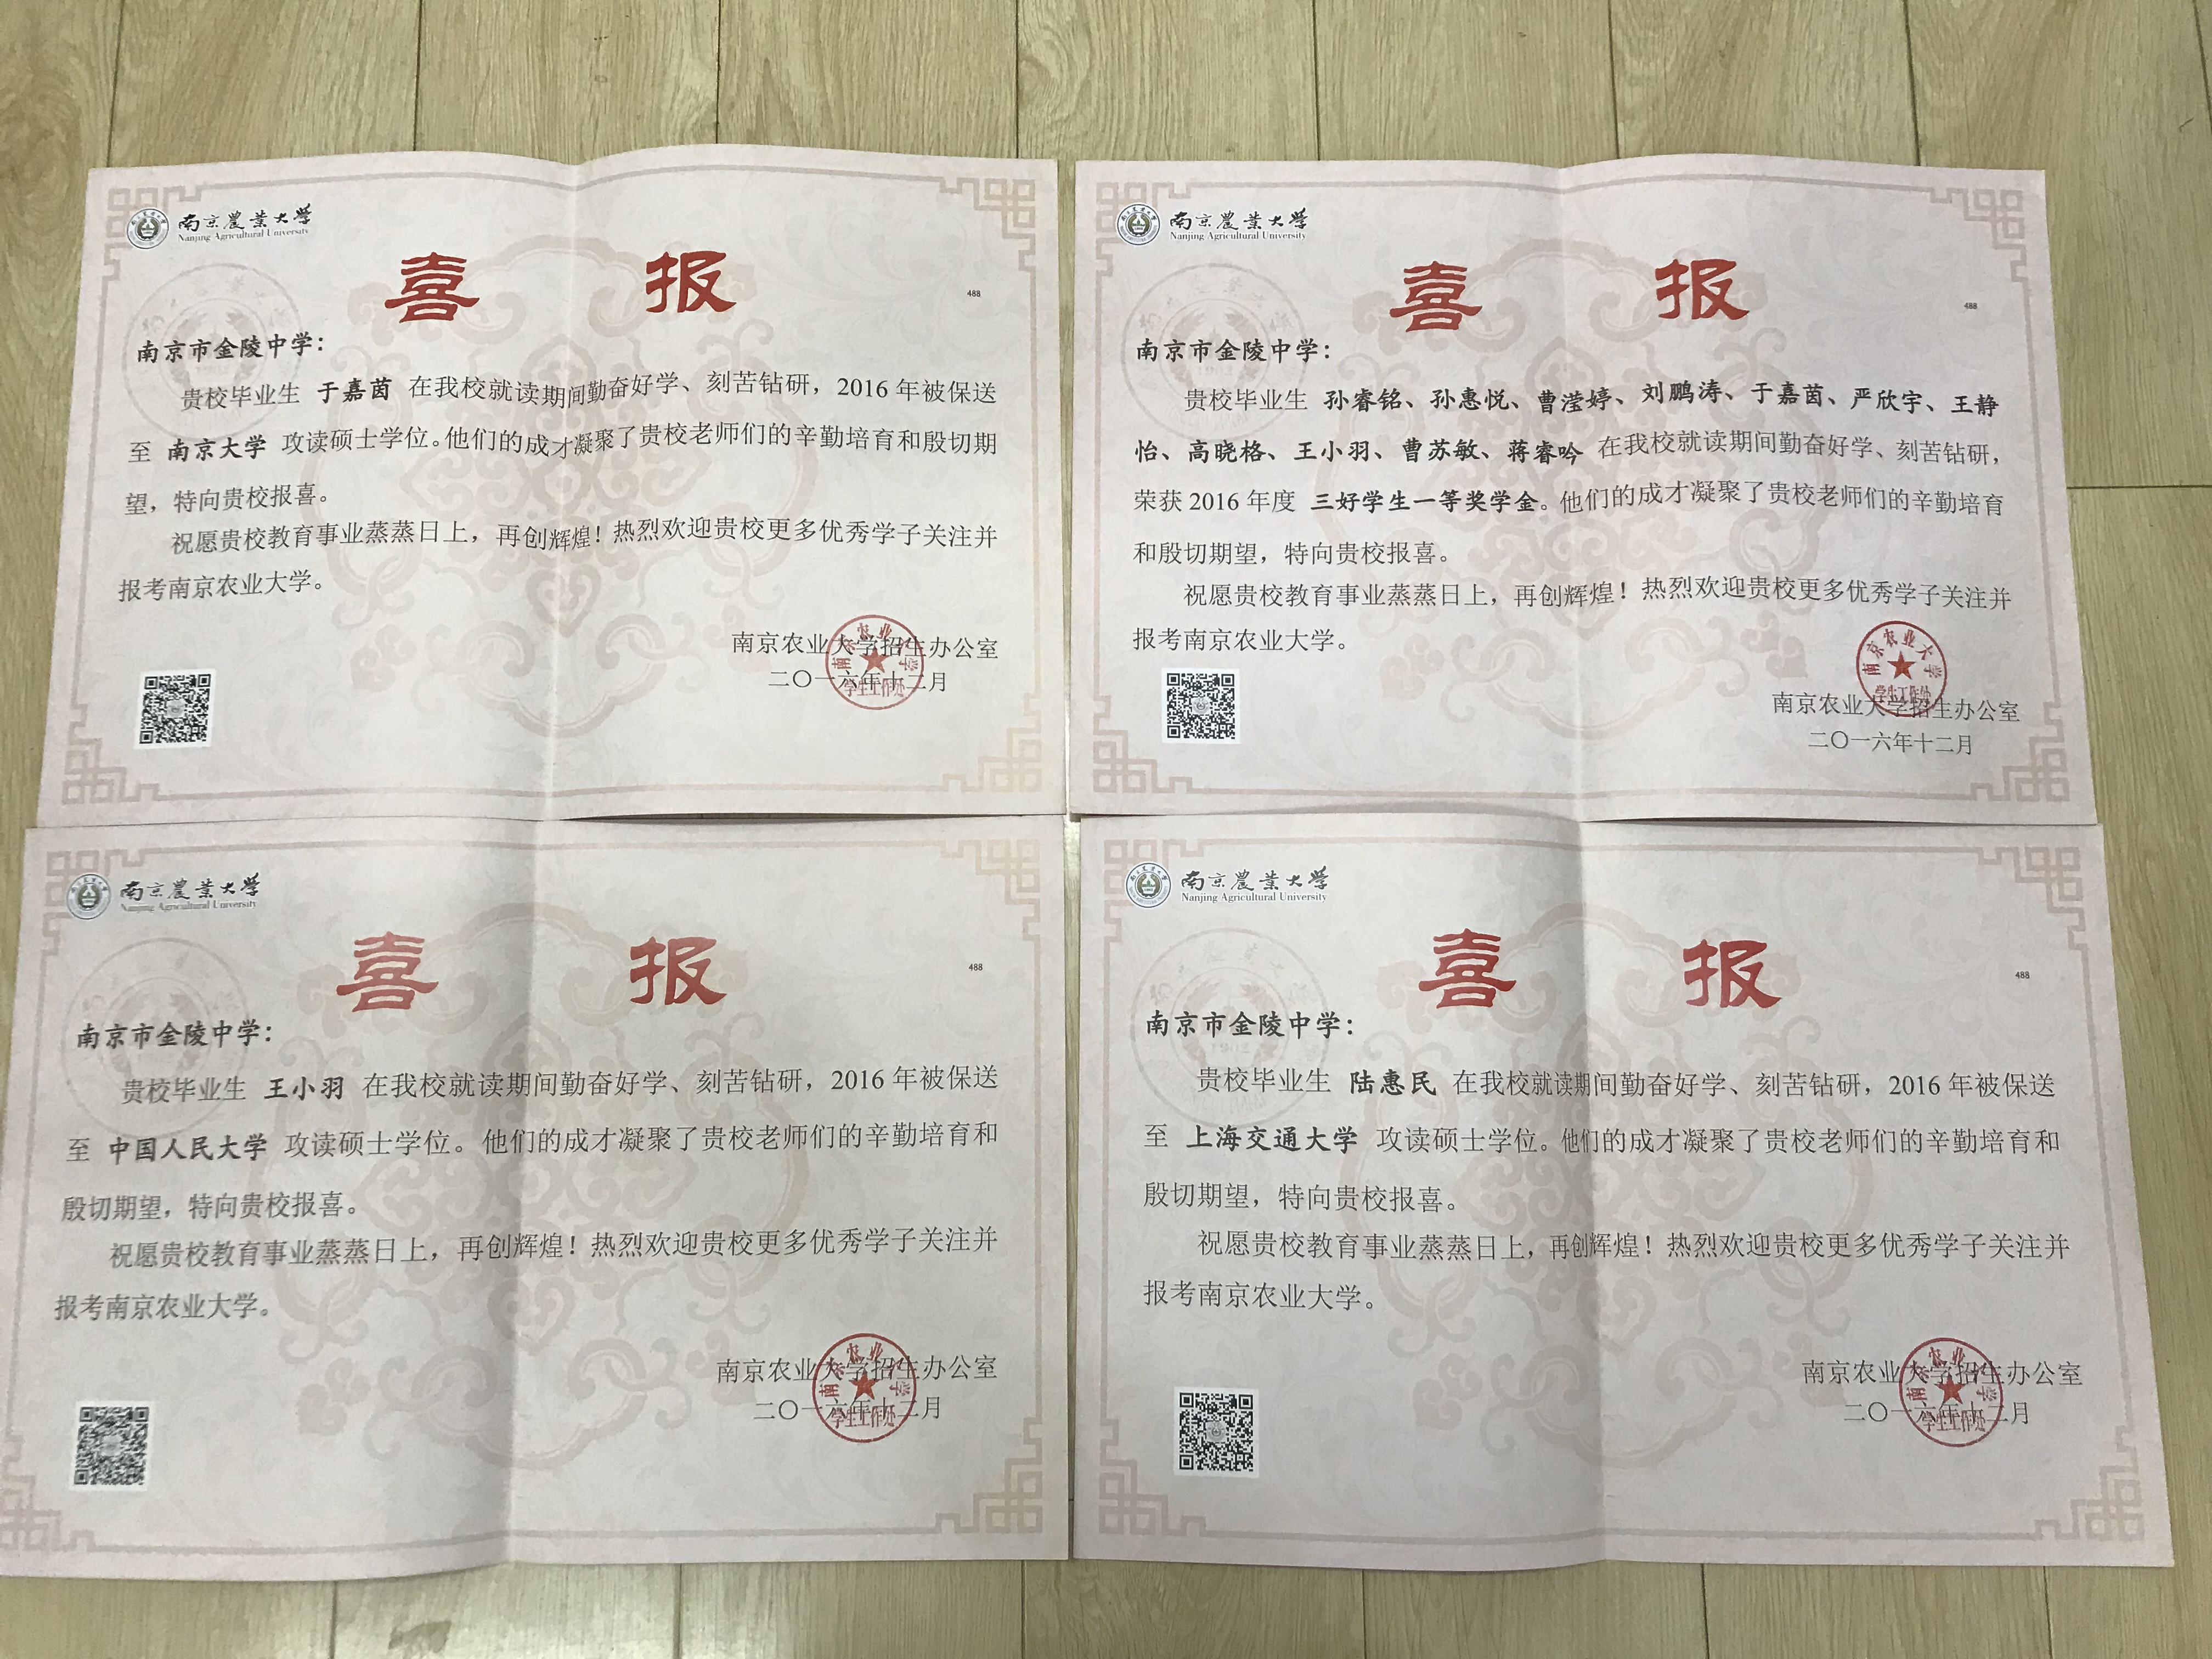 南京農業大学
Nanjing Agricultural University
喜 报
488
南京市金陵中学：
贵校毕业生 于嘉茵 在我校就读期间勤奋好学、刻苦钻研，2016 年被保送
至 南京大学 攻读硕士学位。他们的成才凝聚了贵校老师们的辛勤培育和殷切期
望，特向贵校报喜。
祝愿贵校教育事业蒸蒸日上，再创辉煌！热烈欢迎贵校更多优秀学子关注并
报考南京农业大学。
南京农业大学招生办公室
二〇一六年十二月
南京农业大学
学生工作处
南京農業大学
Nanjing Agricultural University
喜 报
488
南京市金陵中学：
贵校毕业生 孙睿铭、孙惠悦、曹滢婷、刘鹏涛、于嘉茵、严欣宇、王静
怡、高晓格、王小羽、曹苏敏、蒋睿吟 在我校就读期间勤奋好学、刻苦钻研，
荣获 2016 年度 三好学生一等奖学金。他们的成才凝聚了贵校老师们的辛勤培育
和殷切期望，特向贵校报喜。
祝愿贵校教育事业蒸蒸日上，再创辉煌！热烈欢迎贵校更多优秀学子关注并
报考南京农业大学。
南京农业大学
学生工作处
南京农业大学招生办公室
二〇一六年十二月
南京農業大学
Nanjing Agricultural University
喜 报
488
南京市金陵中学：
贵校毕业生 王小羽 在我校就读期间勤奋好学、刻苦钻研，2016 年被保送
至 中国人民大学 攻读硕士学位。他们的成才凝聚了贵校老师们的辛勤培育和
殷切期望，特向贵校报喜。
祝愿贵校教育事业蒸蒸日上，再创辉煌！热烈欢迎贵校更多优秀学子关注并
报考南京农业大学。
南京农业大学招生办公室
二〇一六年十二月
南京农业大学
学生工作处
南京農業大学
Nanjing Agricultural University
喜 报
488
南京市金陵中学：
贵校毕业生 陆惠民 在我校就读期间勤奋好学、刻苦钻研，2016 年被保送
至 上海交通大学 攻读硕士学位。他们的成才凝聚了贵校老师们的辛勤培育和
殷切期望，特向贵校报喜。
祝愿贵校教育事业蒸蒸日上，再创辉煌！热烈欢迎贵校更多优秀学子关注并
报考南京农业大学。
南京农业大学招生办公室
二〇一六年十二月
南京农业大学
学生工作处